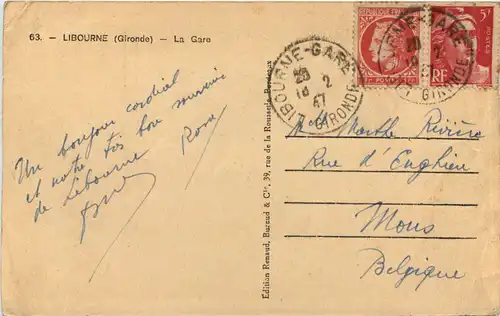 63. - LIBOURNE (Gironde) - La Gare
Un bonjour cordial
et notre très bon souvenir
de Libourne
Edition Renaud, Buzaud & Cie, 39, rue de la Rousselle, Bordeaux
LIBOURNE-GARE
20
18 2
47
GIRONDE
5F
RF
POSTES
Marthe Rivière
Rue d'Enghien
Mons
Belgique